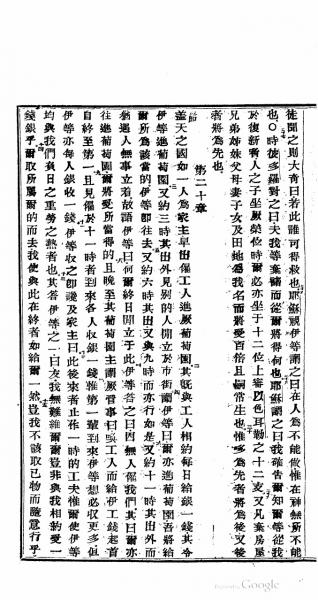 徒聞之則大奇曰若此誰可得救也耶穌視伊等謂之曰在人為不能做惟在神無所不能
也○時彼多羅對之曰夫我等棄諸而從爾將得何也耶穌謂之曰我確告爾知爾等從我
於復新者人之子坐厥榮位時爾必亦坐于十二位上審以色耳勒之十二支又凡棄房屋
兄弟姊妹父母妻子女及田地爲我名而將受百倍且嗣常生也惟多爲先者將爲後又後
者將爲先也
第二十章
蓋天之國如一人爲家主早出僱工人進厥葡萄園其既與工人相約每日給銀一錢其令
伊等進葡萄園又約三時其出外見別的人閒立於市街謂伊等曰爾亦進葡萄園吾將給
爾所爲該當的伊等即往去又約六時其出又與九時而亦行如是又約十一時其出外而
猶遇人無事立着故語伊等曰何爾終日閒立于此伊等答之曰因無人僱我們其曰爾亦
往進葡萄園爾將受所當得的且晚至其葡萄園主謂厥管事曰喚工人而給伊工錢起首
自終至第一且見僱於十一時者到來各人收銀一錢惟第一輩到來伊等想必收更多但
伊等亦每人銀收一錢伊等收之即譏及家主曰此後來者止作一時的工夫惟爾使伊等
均與我們負日之重勞之熱者也其答伊等之一曰友我無難爾爾豈非與我相約受一
錢銀乎爾取所屬爾的而去我使與此在終者如給爾一然豈我不該取己物而隨意行乎
Google